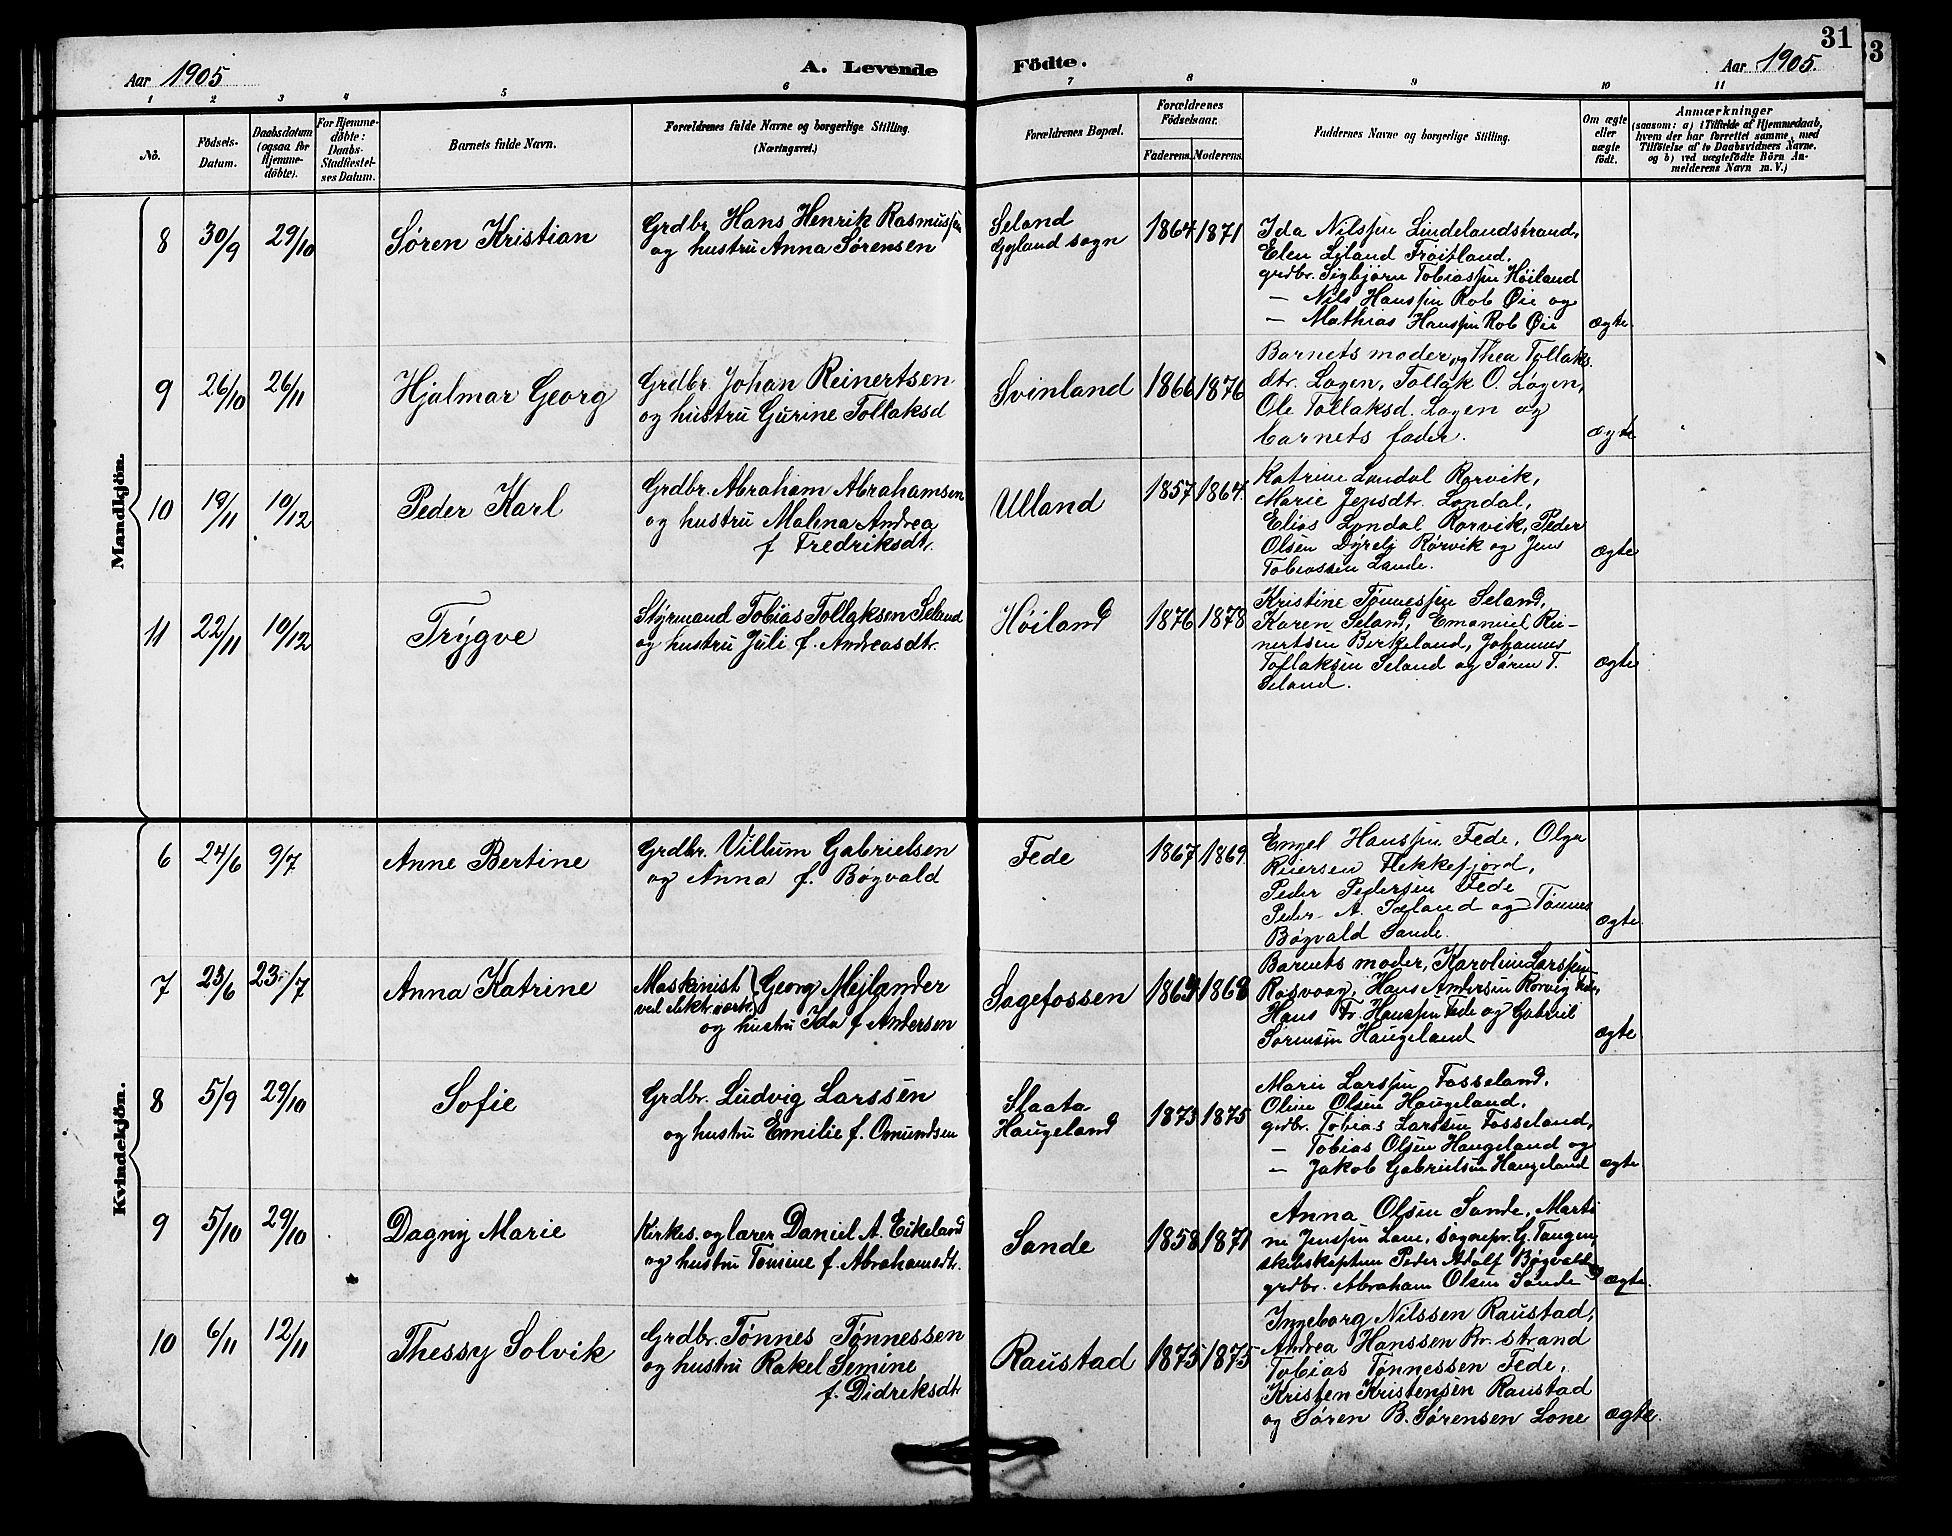 31
33
Aar 1905
A. Levende Födte.
Aar 1905.
1 2 3 4 5 6 7 8 9 10 11
No.
Födsels-
Datum.
Daabsdatum
(ogsaa for
Hjemme-
döbte).
For Hjemme-
döbte:
Daabs-
Stadfæstel-
ses Datum.
Barnets fulde Navn.
Forældrenes fulde Navne og borgerlige Stilling.
(Næringsvei.)
Forældrenes Bopæl.
Forældrenes
Födselsaar.
Faderens. Moderens.
Faddernes Navne og borgerlige Stilling.
Om ægte
eller
uægte
født.
Anmærkninger
(saasom: a) i Tilfælde af Hjemmedaab,
hvem der har forrettet samme, med
Tilföielse af to Daabsvidners Navne,
og b) ved uægtefödte Börn An-
melderens Navn m. V.)
Mandkjön.
8 30/9 29/10
Søren Kristian
Grdbr. Hans Henrik Rasmussen
og hustru Anna Sørensen
Seland
Gyland sogn
1864 1871
Ida Nilssen Lindelandstrand,
Elen Liland Frøitland,
grdbr. Sigbjørn Tobiassen Høiland
— Nils Hanssen Rob Øie og
— Mathias Hanssen Rob Øie
ægte
9 26/10 26/11
Hjalmar Georg
Grdbr. Johan Reinertsen
og hustru Gurine Tollaksd
Svinland
1866 1876
Barnets moder, og Thea Tollaks
dtr. Logen, Tollak O. Logen,
Ole Tollaksd. Logen og
barnets fader.
ægte
10 19/11 10/12
Peder Karl
Grdbr. Abraham Abrahamsen
og hustru Malena Andrea
f Fredriksdtr.
Ulland
1857 1864
Katrine Londal Rørvik,
Marie Jensdtr. Londal,
Elias Londal Rørvik, Peder
Olsen Dyreli Rørvik og Jens
Tobiassen Lande.
ægte
11 22/11 10/12
Trygve
Styrmand Tobias Tollaksen Seland
og hustru Juli f. Andreasdtr.
Høiland
1876 1878
Kristine Tønnessen Seland,
Karen Seland, Emanuel Rei-
nertsen Birkeland, Johannes
Tollaksen Seland og Søren T.
Seland.
ægte
Kvindekjön.
6 24/6 9/7
Anne Bertine
Grdbr. Villum Gabrielsen
og Anna f. Bøgvald
Fede
1867 1869
Engel Hanssen Fede, Olga
Reiersen Flekkefjord,
Peder Pedersen Fede
Peder A. Sæland og Tønnes
Bøgvald Sande.
ægte
7 23/6 23/7
Anna Katrine
Maskinist Georg Mejlander
ved elektr. værk
og hustru Ida f Andersen
Sagefossen
1869 1868
Barnets moder, Karoline Larssen
Rasvaag, Hans Andersen Rørvig
Hans Fr. Hanssen Fede og Gabriel
Sørensen Haugeland
ægte
8 5/9 29/10
Sofie
Grdbr. Ludvig Larssen
og hustru Emilie f. Omundsen
Slaata
Haugeland
1873 1875
Marie Larssen Fosseland,
Oline Olsen Haugeland,
grdbr. Tobias Larssen Fosseland,
— Tobias Olsen Haugeland og
— Jakob Gabrielsen Haugeland
ægte
9 5/10 29/10
Dagny Marie
Kirkes. og lærer Daniel A. Eikeland
og hustru Tomine f. Abrahamsdtr.
Sande
1858 1871
Anna Olsen Sande, Marti
ne Jenssen Lone, sognepr. G. Tangen,
skibskaptein Peder Adolf Bøgvald
grdbr. Abraham Olsen Sande
ægte.
10 6/11 12/11
Thessy Solvik
Grdbr. Tønnes Tønnessen
og hustru Rakel Semine
f. Didreksdtr
Raustad
1875 1875
Ingeborg Nilssen Raustad,
Andrea Hanssen Br. strand
Tobias Tønnessen Fede,
Kristen Kristensen Raustad
og Søren B. Sørensen Lone
ægte.